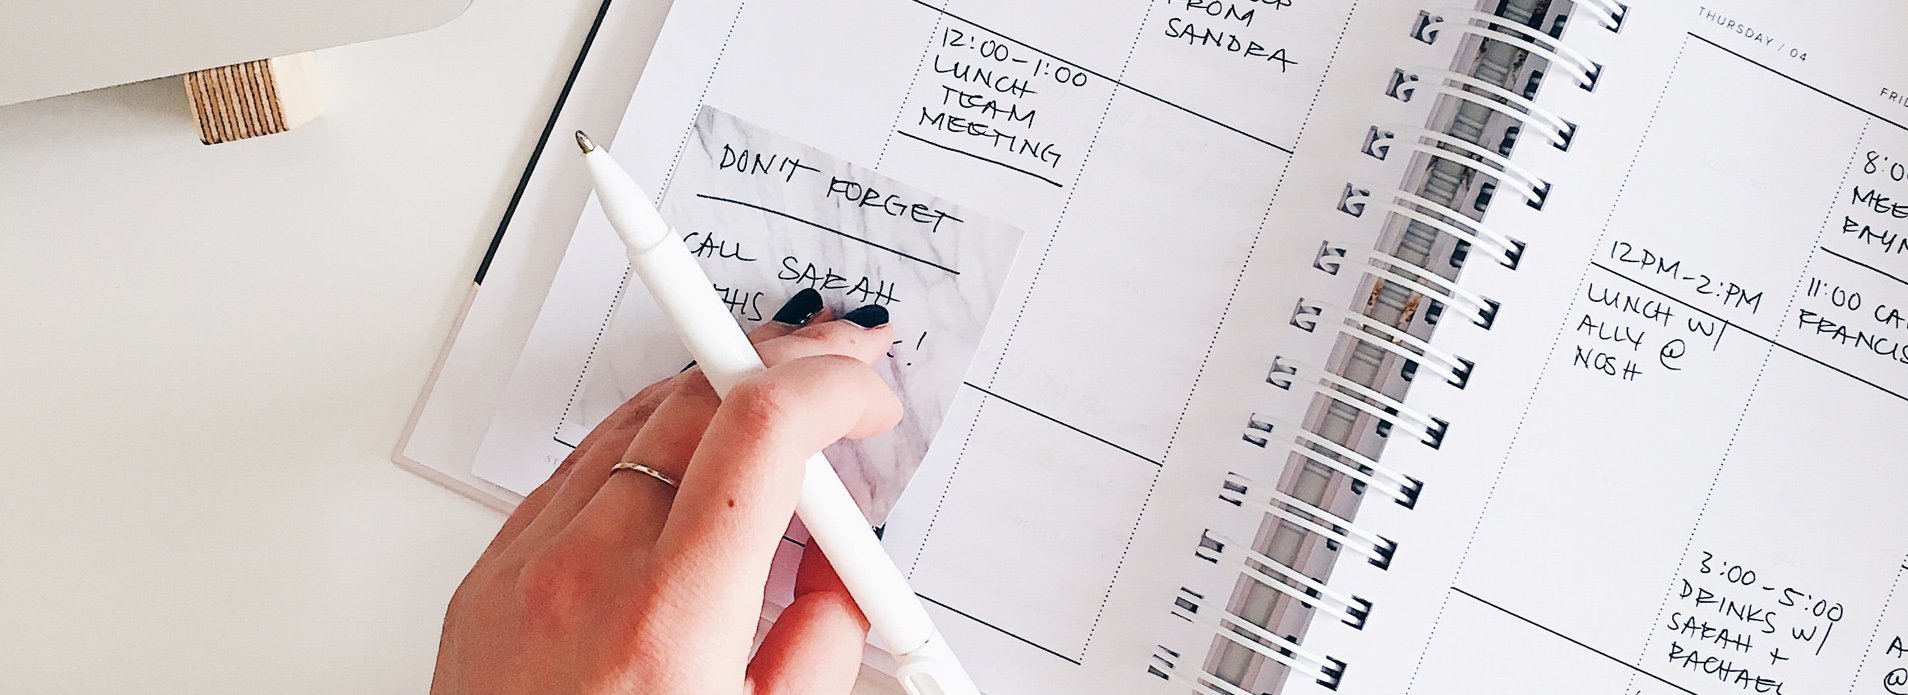 FROM
SANDRA
12:00-1:00
LUNCH
TEAM
MEETING
DON'T FORGET
CALL SARAH
THIS
!
THURSDAY / 04
12PM-2:PM
LUNCH W/
ALLY @
NOSH
3:00-5:00
DRINKS W/
SARAH +
RACHAEL
11:00
FRANCIS